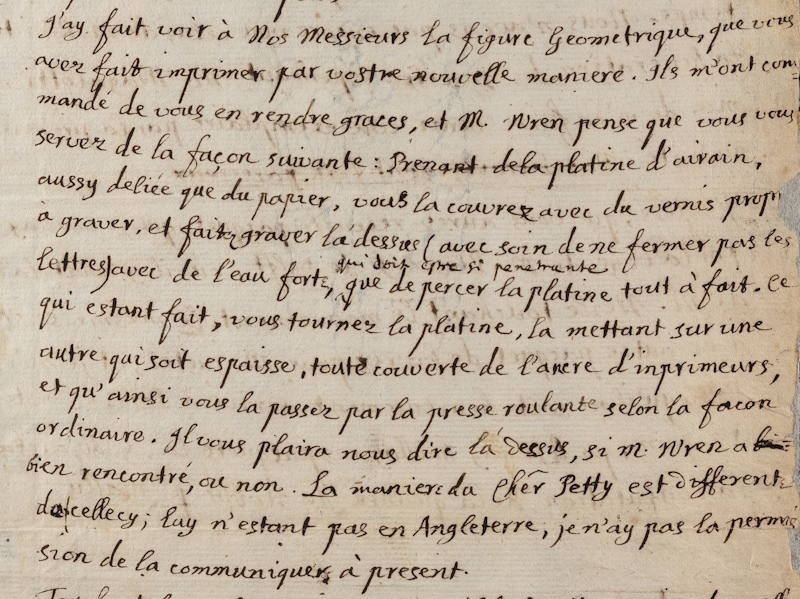 J'ay fait voir à Nos Messieurs la figure Geometrique, que vous
avez fait imprimer par vostre nouvelle maniere. Ils m'ont com-
mandé de vous en rendre graces, et M. Wren pense que vous vous
servez de la façon suivante: Prenant de la platine d'airain,
aussy deliée que du papier, vous la couvrez avec du vernis propr
à graver, et faitz graver là dessus (avec soin de ne fermer pas les
qui soit estre si penetrante
lettres) avec de l'eau forte, que de percer la platine tout à fait. Ce
qui estant fait, vous tournez la platine, la mettant sur une
autre qui soit espaisse, toute couverte de l'ancre d'inprimeurs,
et qu'ainsi vous la passez par la presse roulante selon la facon
ordinaire. Il vous plaira nous dire là dessus, si M. Wren a
bien rencontré, ou non. La maniere du Cher Petty est differente
de cellecy; luy n'estant pas en Angleterre, je n'ay pas la permis
sion de la communiquer à present.